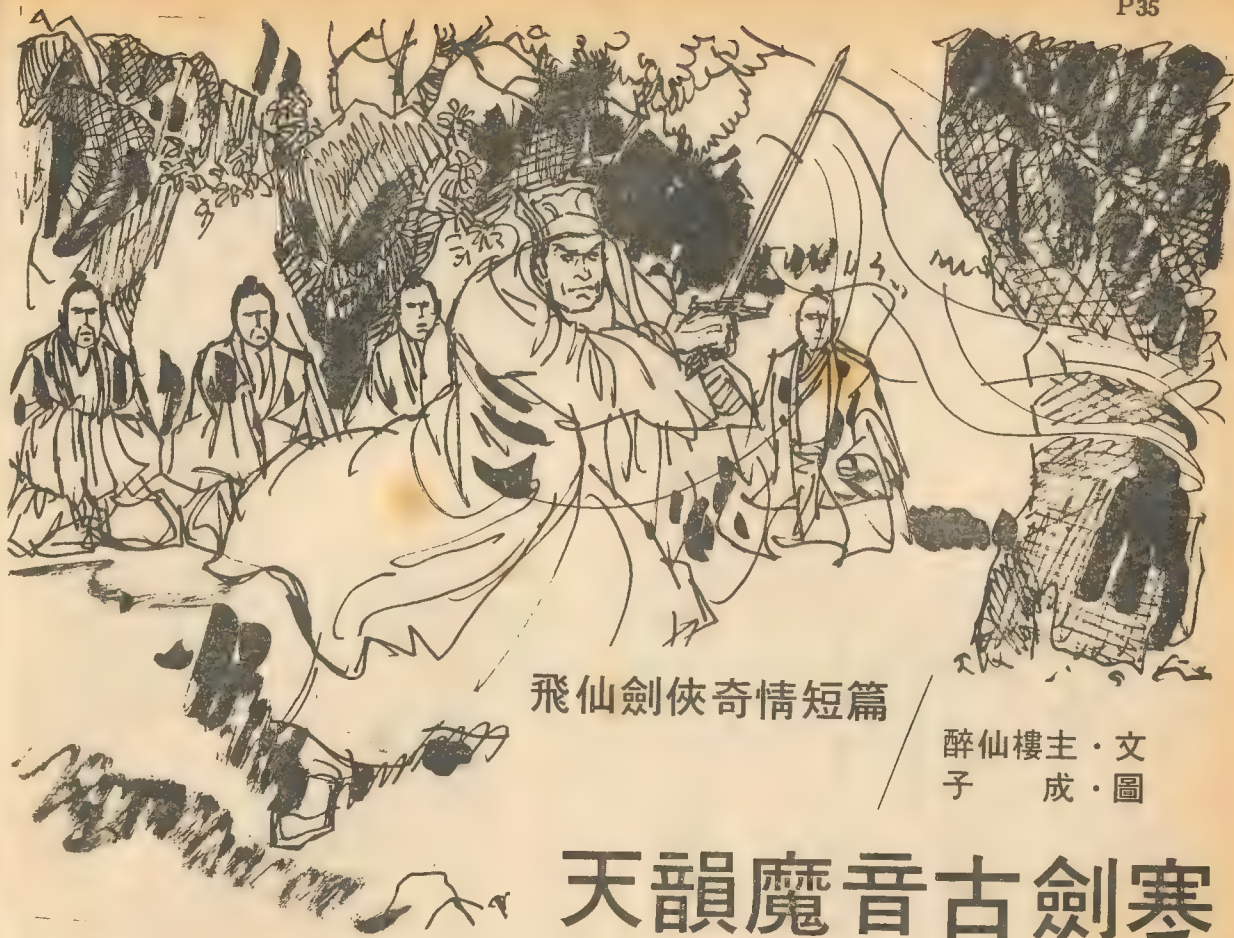 P35
飛仙劍俠奇情短篇
醉仙樓主·文
子 成·圖
天韻魔音古劍寒